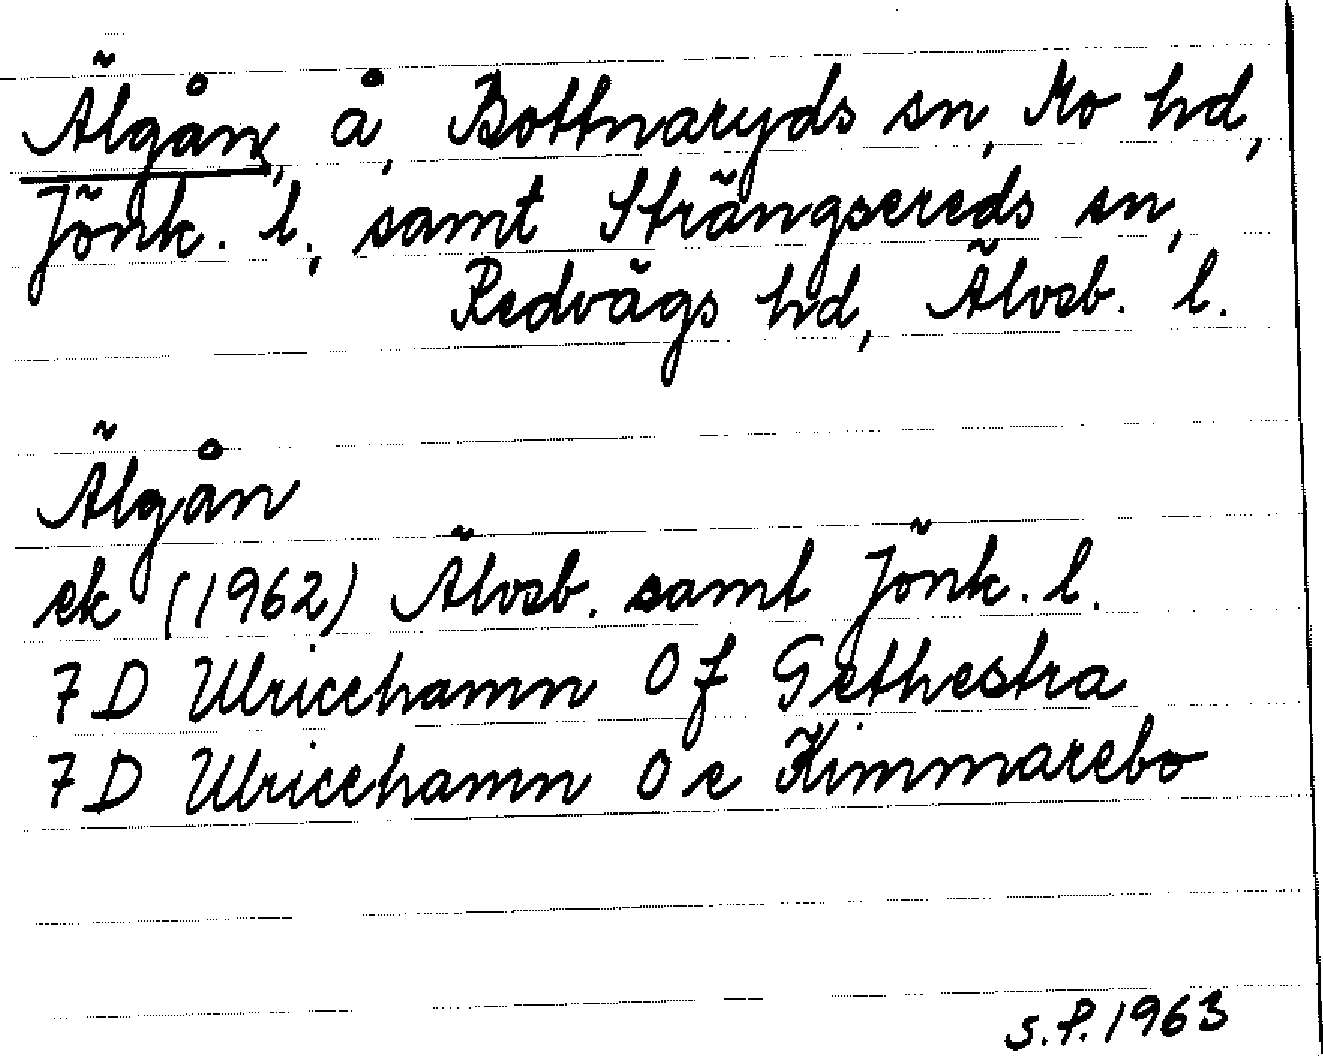 Älgån, å, Bottnaryds sn, Mo hd,
Jönk. l., samt Strängsereds sn,
Redvägs hd, Älvsb. l.
Älgån
ek (1962) Älvsb. samt Jönk. l.
7 D Ulricehamn 0 f Gethestra
7 D Ulricehamn 0 e Kimmarebo
S.P. 1963